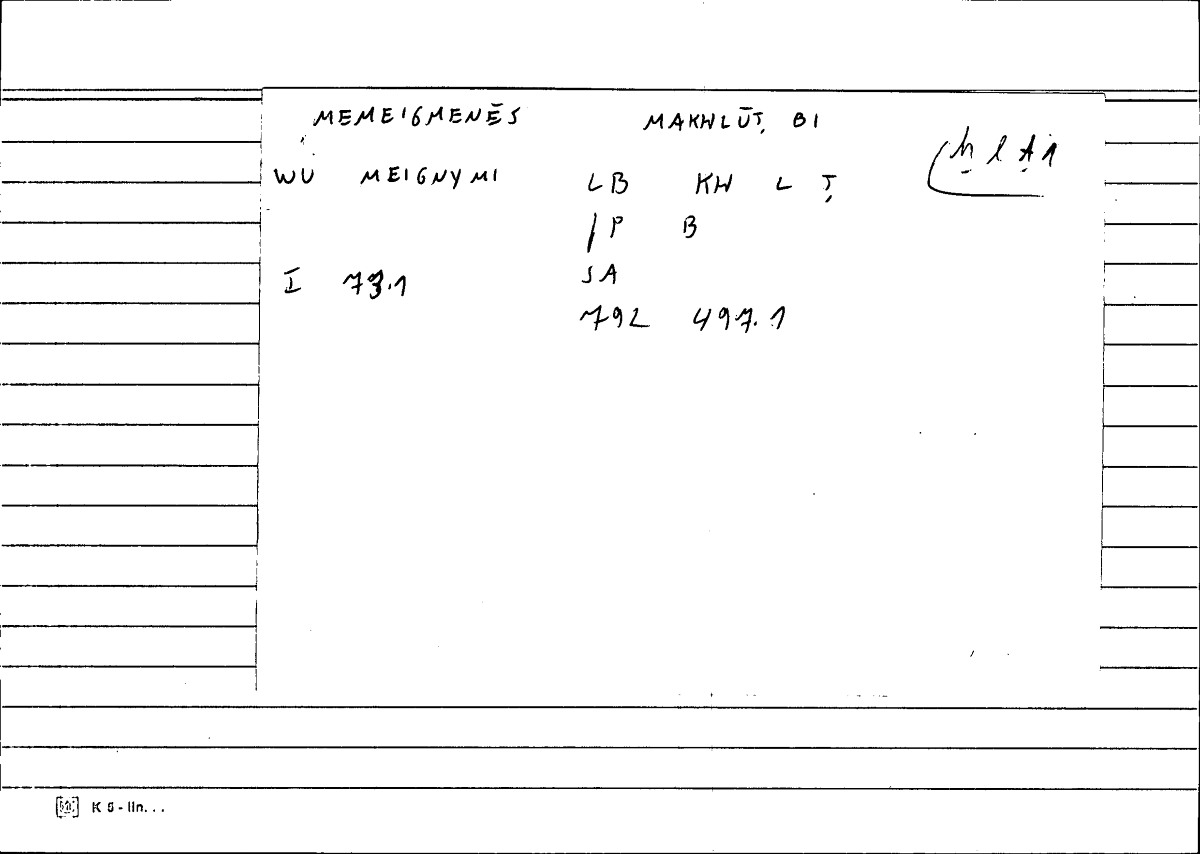 MEMEIGMENĒS MAKHLŪṬ BI
WU MEIGNYMI LB KH L Ṭ
/ P B
SA
I 73.1
792 497.1
K 5 - lin...